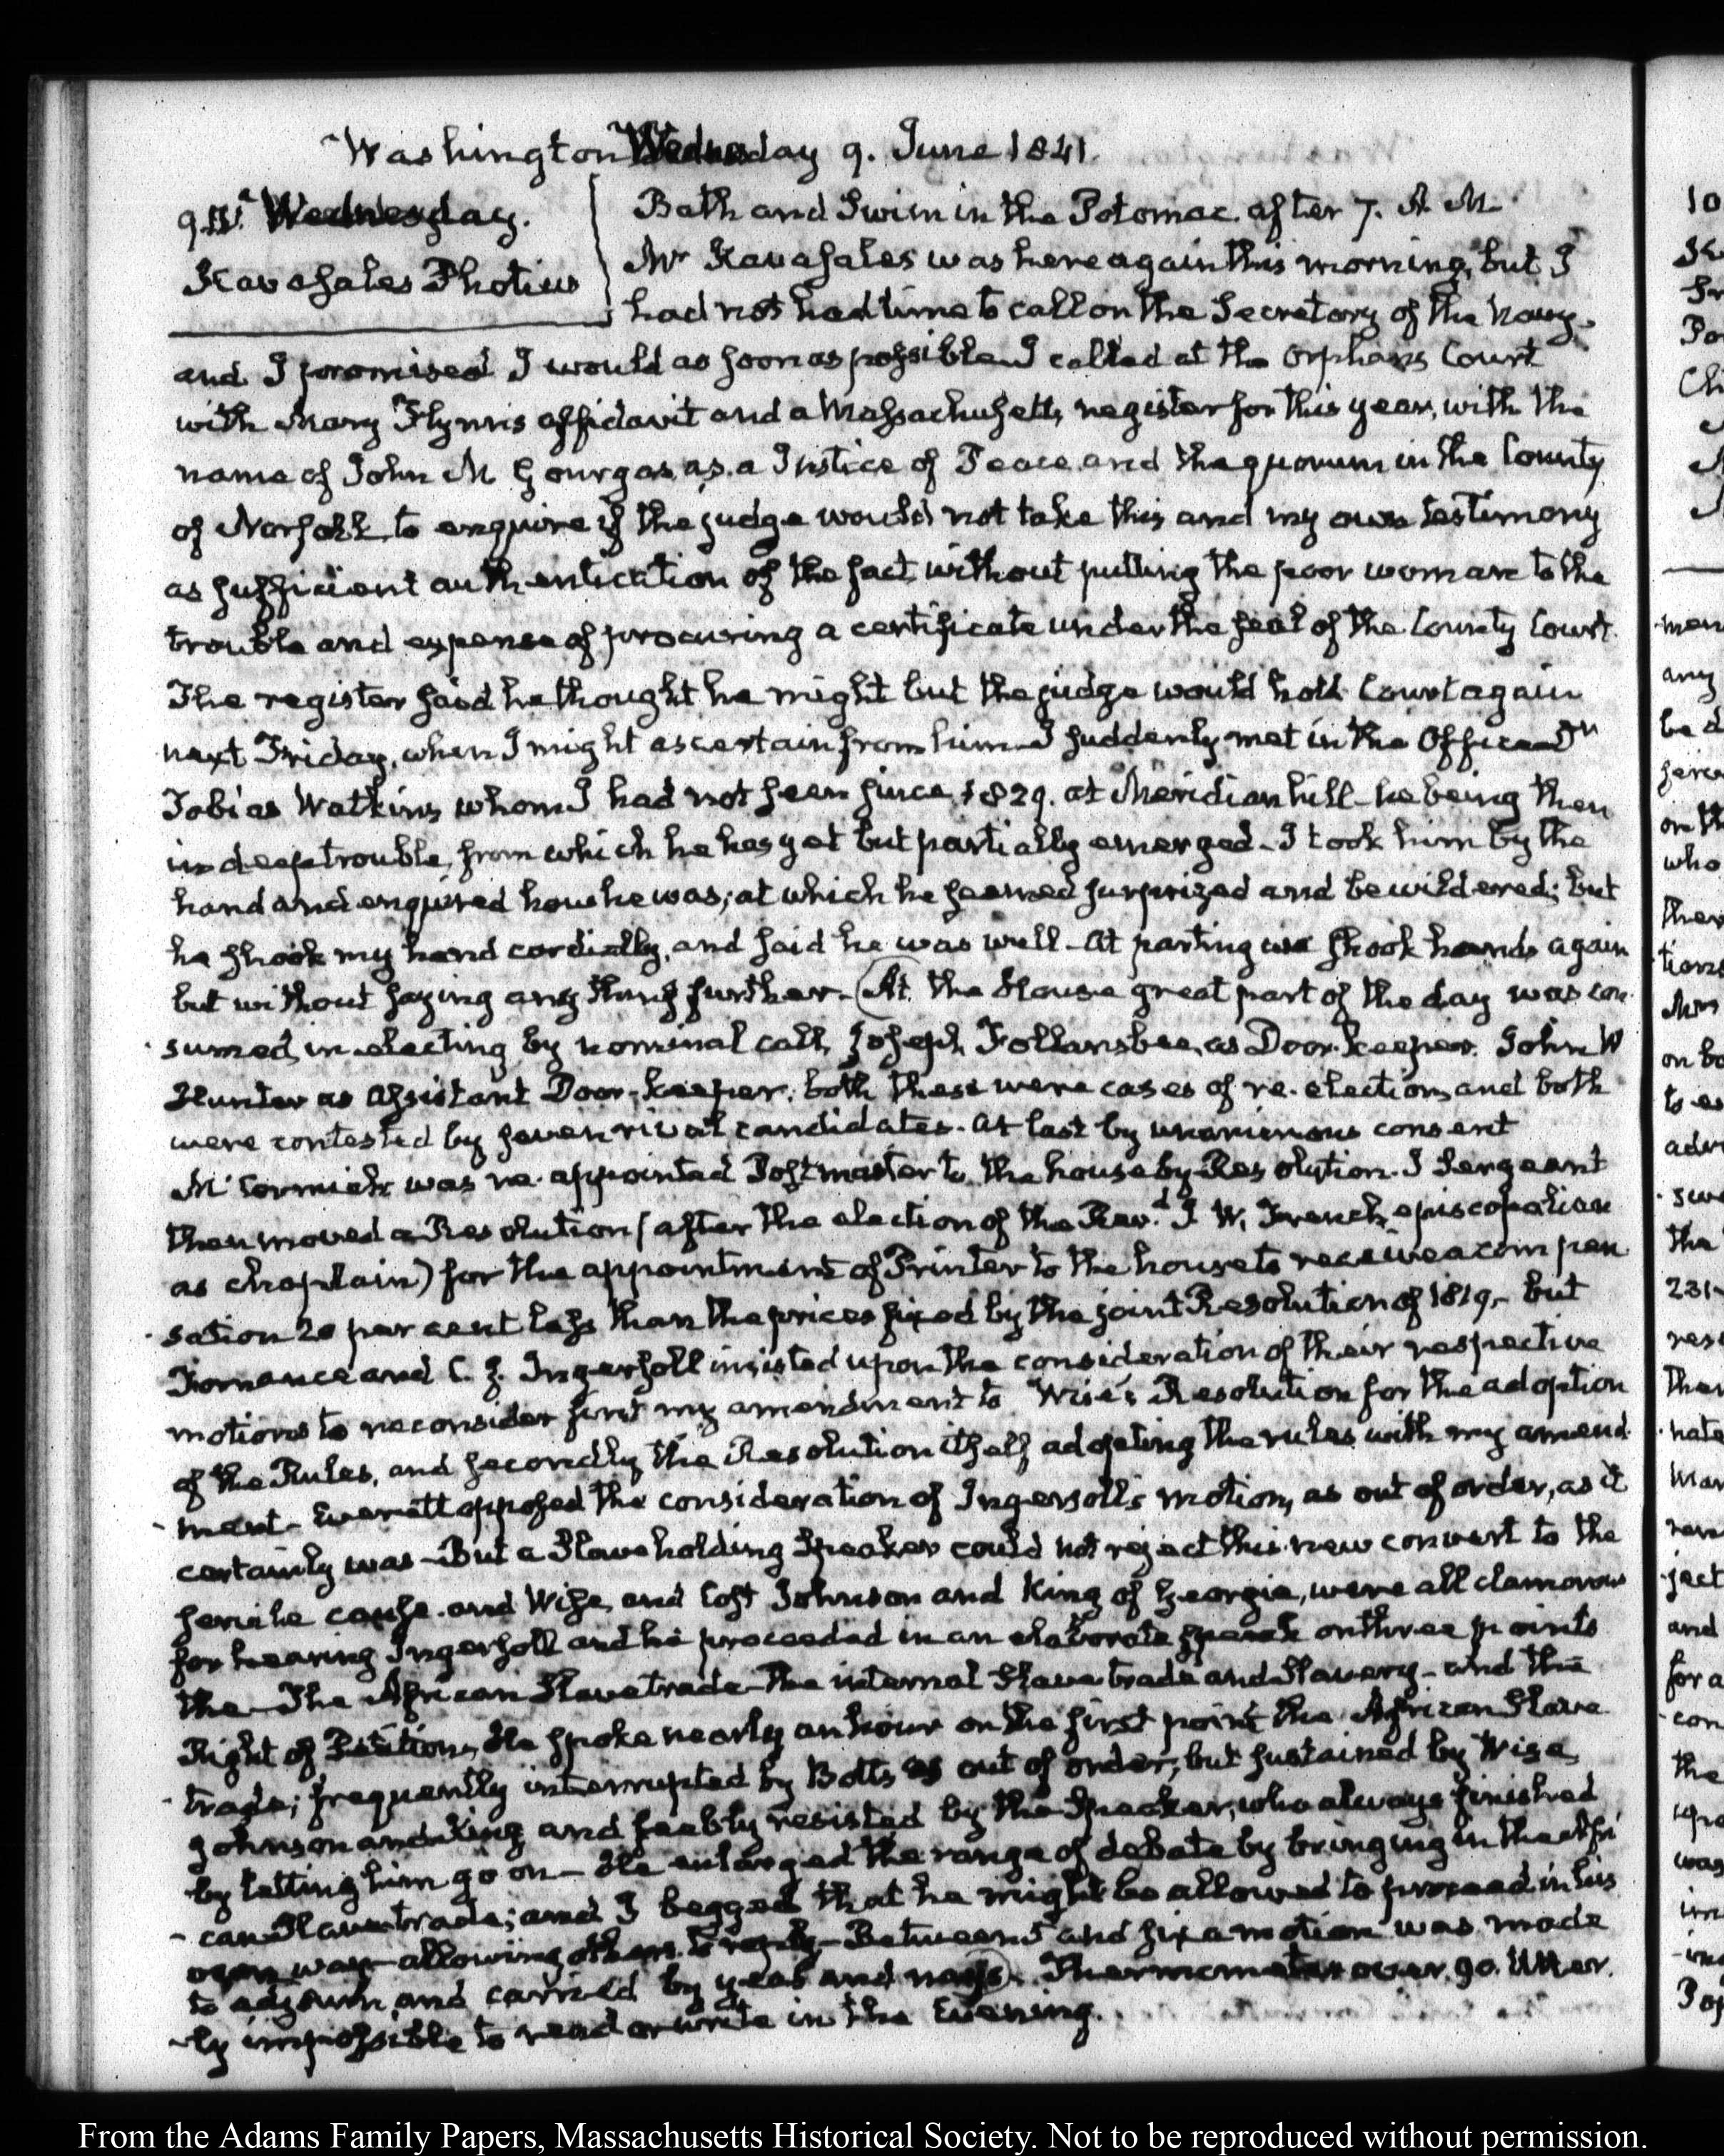 Washington Wednesday 9. June 1841.
9. IV. Wednesday.
Kavasales Photius
Bath and Swim in the Potomac after 7. A.M.
Mr Kavasales was here again this morning, but I
had not had time to call on the Secretary of the Navy.
and I promised I would as soon as possible I called at the Orphans Court
with Mary Flynn's affidavit and a Massachusetts register for this year, with the
name of John M Gourgas, as a Justice of Peace and the quorum in the County
of Norfolk, to enquire if the judge would not take this and my own testimony
as sufficient authentication of the fact, without putting the poor woman to the
trouble and expense of procuring a certificate under the seal of the County Court.
The register said he thought he might but the judge would hold Court again
next Friday, when I might ascertain from him. I suddenly met in the Office Dr
Tobias Watkins whom I had not seen since 1829. at Meridian hill - he being then
in deep trouble, from which he has yet but partially emerged - I took him by the
hand and enquired how he was; at which he seemed surprized and bewildered; but
he shook my hand cordially, and said he was well - At parting we shook hands again
but without saying any thing further - (At the House great part of the day was con
sumed in electing by nominal call, Joseph Follansbee, as Door-keeper. John W
Hunter as assistant Door-keeper. both these were cases of re-election, and both
were contested by seven rival candidates. At last by unanimous consent
McCormick was re-appointed Postmaster to the house by Resolution. J Sergeant
then moved a Resolution (after the election of the Revd. J. W. French, episcopalian
as chaplain) for the appointment of Printer to the house to receive a compen
sation 20 per cent less than the prices fixed by the joint Resolution of 1819, - but
Fornance and C. J. Ingersoll insisted upon the consideration of their respective
motions to reconsider first my amendment to Wise's Resolution for the adoption
of the Rules, and secondly the Resolution itself adopting the rules with my amend
ment - Everett opposed the consideration of Ingersoll's motion, as out of order, as it
certainly was - But a Slave holding Speaker could not reject this new convert to the
servile cause. and Wise, and Cost Johnson and King of Georgia, were all clamorous
for hearing Ingersoll and he proceeded in an elaborate speech on three points
the - The African Slave trade - The internal Slave trade and Slavery - and the
Right of Petition, He spoke nearly an hour on the first point the African Slave
trade; frequently interrupted by Botts as out of order, but sustained by Wise,
Johnson and King and feebly resisted by the Speaker, who always finished
by letting him go on - He enlarged the range of debate by bringing in the Afri
can Slave trade; and I begged that he might be allowed to proceed in his
own way - allowing others to reply - Between 5 and six a motion was made
to adjourn and carried by yeas and nays). Thermometer over 90. Utter
ly impossible to read or write in the Evening.
10
men
any
be d
on th
who
ther
tions
Mr
on bo
to es
adv
the
231-
res
Then
hate
Mar
ject
and
for a
con
the
was
From the Adams Family Papers, Massachusetts Historical Society. Not to be reproduced without permission.